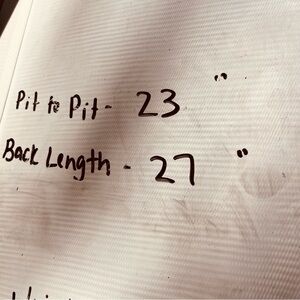 Pit to Pit - 23 "
Back Length - 27 "